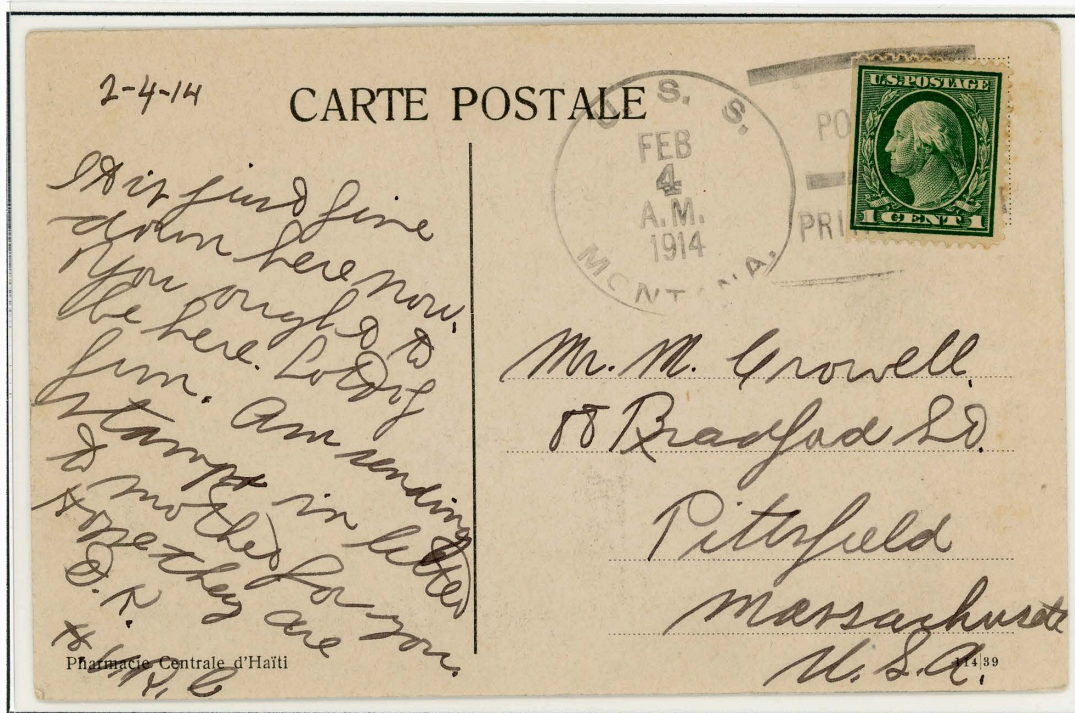 2-4-14
CARTE POSTALE
U. S. S.
MONTANA.
FEB
4
A.M.
1914
PO
PRI
U.S. POSTAGE
1 CENT 1
It is just fine
down here now.
You ought to
be here. Lots of
fun. Am sending
stamps in letter
to mother for you.
Hope they are
O.K.
Mr. M. Crowell
88 Bradford St.
Pittsfield
Massachusetts
U.S.A.
Pharmacie Centrale d'Haïti
114 39